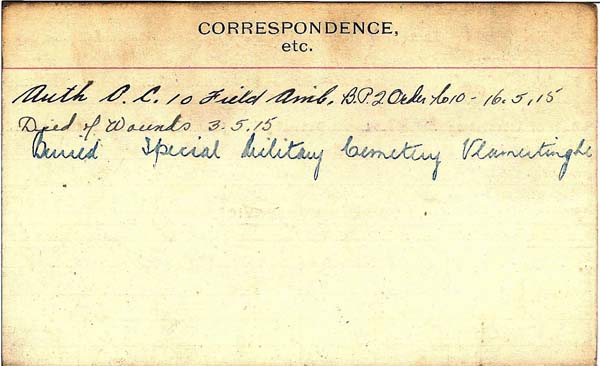 CORRESPONDENCE,
etc.
Auth O.C. 10 Field Amb. B.P.2 Order 610 - 16.5.15
Died of Wounds 3.5.15
Buried Special Military Cemetery Vlamertinghe